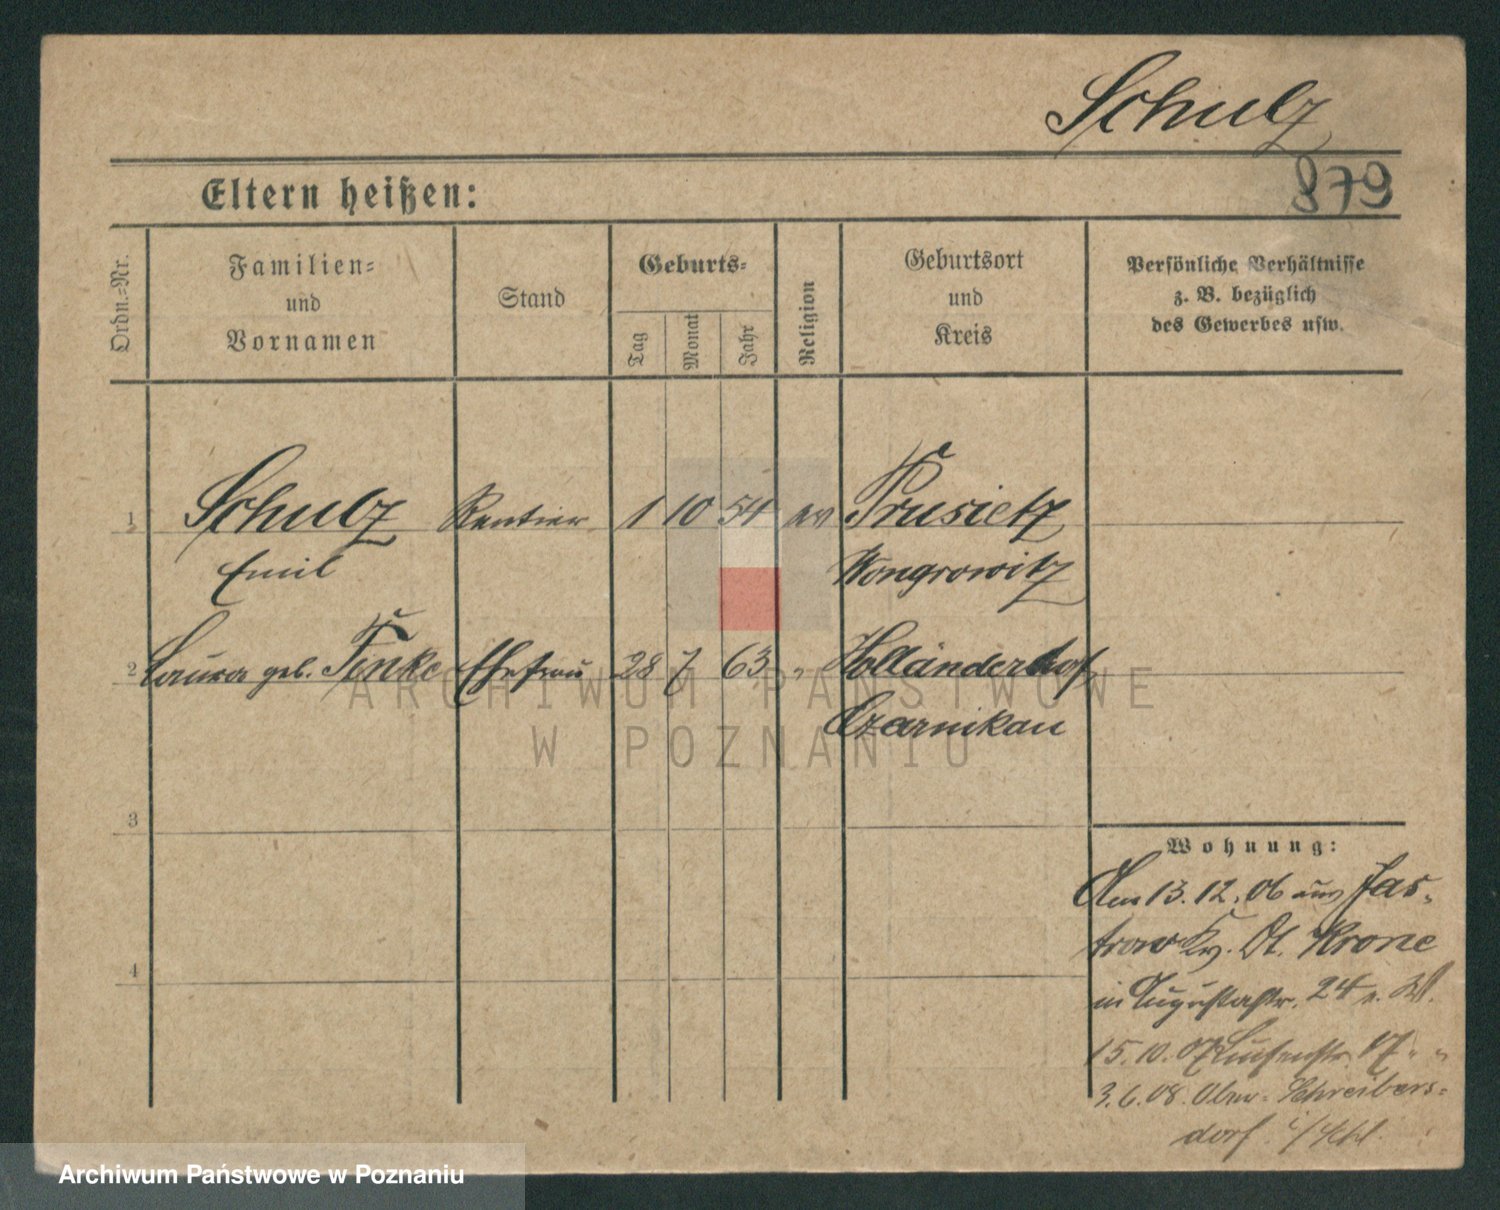 Schulz
Eltern heißen:
879
Ordn.=Nr.
Familien=
und
Vornamen
Stand
Geburts=
Tag
Monat
Jahr
Religion
Geburtsort
und
Kreis
Persönliche Verhältnisse
z. B. bezüglich
des Gewerbes usw.
1 Schulz Rentier 1 10 54 ev Prusietz
Emil Wongrowitz
2 Laura geb. Tenke Ehefrau 28 7 63 " Holländerhof
Czarnikau
3
Wohnung:
Am 13.12.06 aus Jas-
trow Kr. Dt. Krone
4
in Augustastr. 24 v. W.
15.10.07 Luisenstr. 17 " "
3.6.08. Ober-Schreibers-
dorf i/Schl.
ARCHIWUM PAŃSTWOWE
W POZNANIU
Archiwum Państwowe w Poznaniu